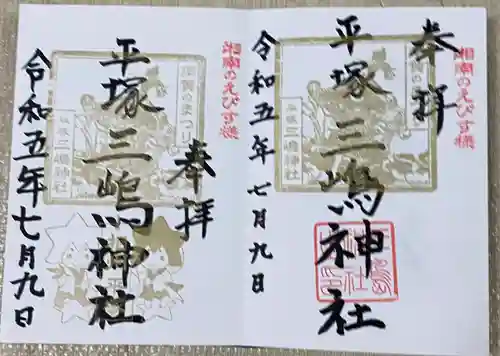 奉拝
湘南のえびす様
平塚三嶋神社
令和五年七月九日
平塚
三嶋神社
湘南のえびす様
奉拝
須賀のまつり
平塚三嶋神社
平塚
三嶋神社
令和五年七月九日